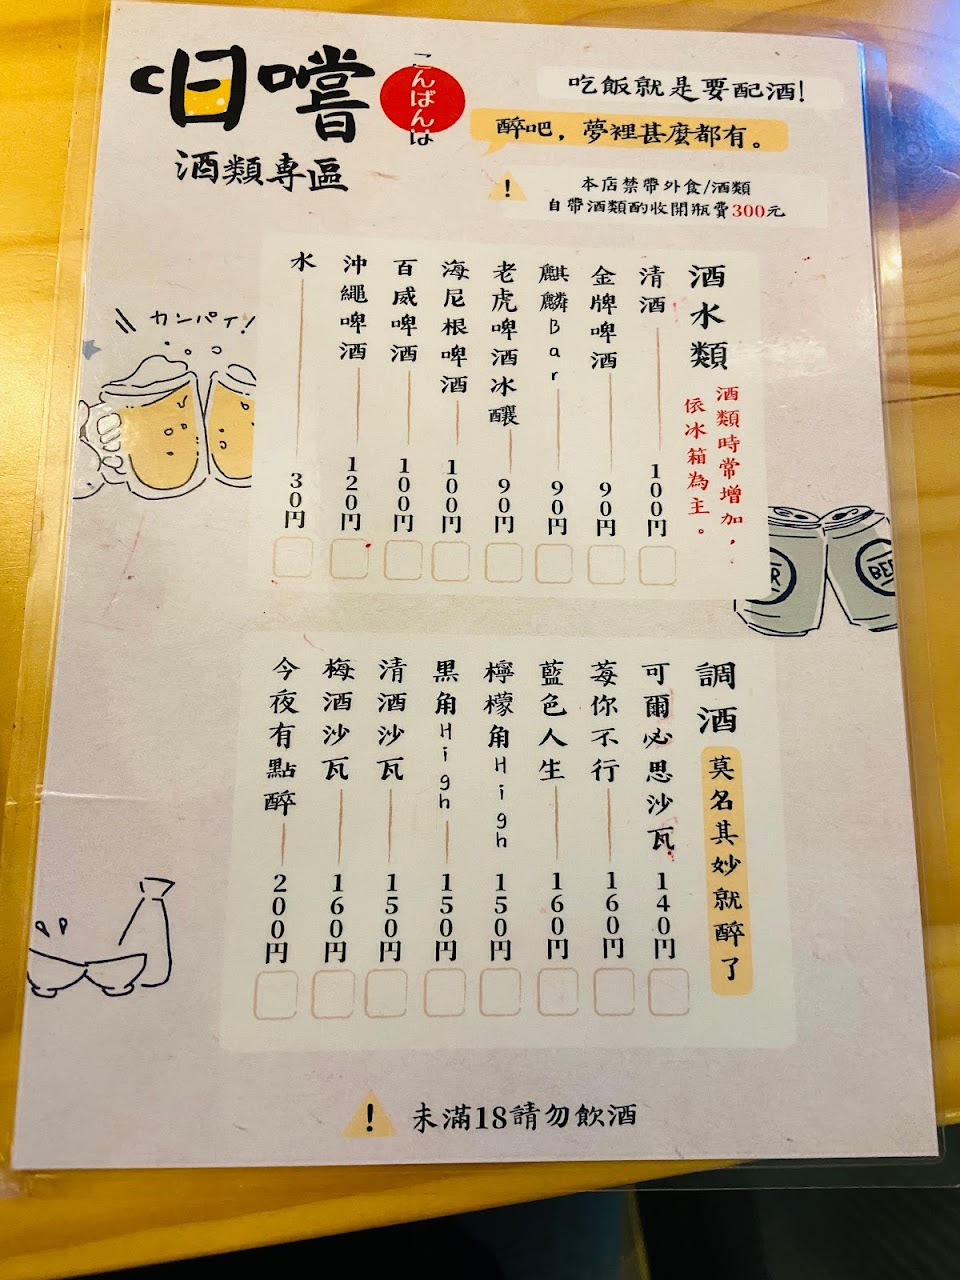 日嚐
こんばんは
酒類専區
吃飯就是要配酒!
醉吧，夢裡甚麼都有。
!
本店禁帶外食/酒類
自帶酒類酌收開瓶費300元
酒水類
酒類時常增加，
依冰箱為主。
清酒 100円
金牌啤酒 90円
麒麟Bar 90円
老虎啤酒冰釀 90円
海尼根啤酒 100円
百威啤酒 100円
沖繩啤酒 120円
水 30円
カンパイ!
BEER
調酒
莫名其妙就醉了
可爾必思沙瓦 140円
莓你不行 160円
藍色人生 160円
檸檬角High 150円
黑角High 150円
清酒沙瓦 150円
梅酒沙瓦 160円
今夜有點醉 200円
!
未滿18請勿飲酒